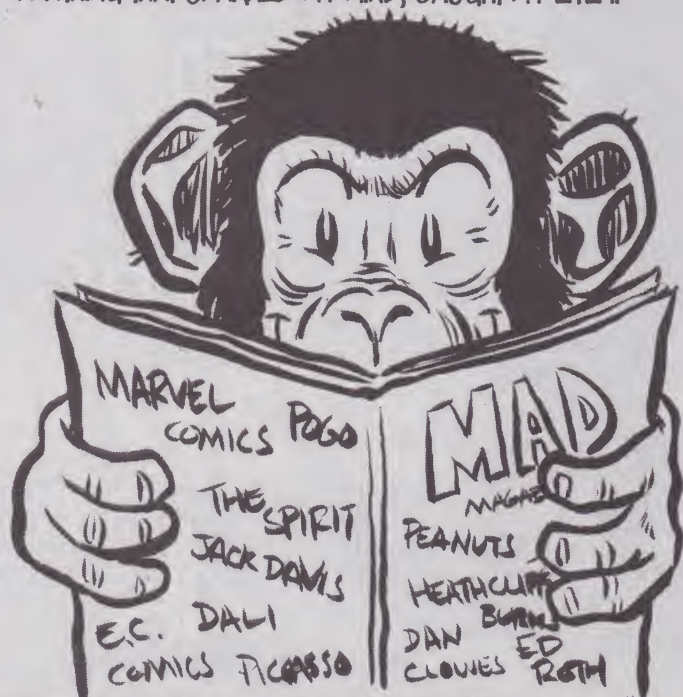 MARVEL
COMICS
POGO
THE
SPIRIT
JACK DAVIS
E.C.
COMICS
DALI
PICASSO
MAD
PEANUTS
HEATHCLIFF
DAN
CLOWES
ED
ROTH